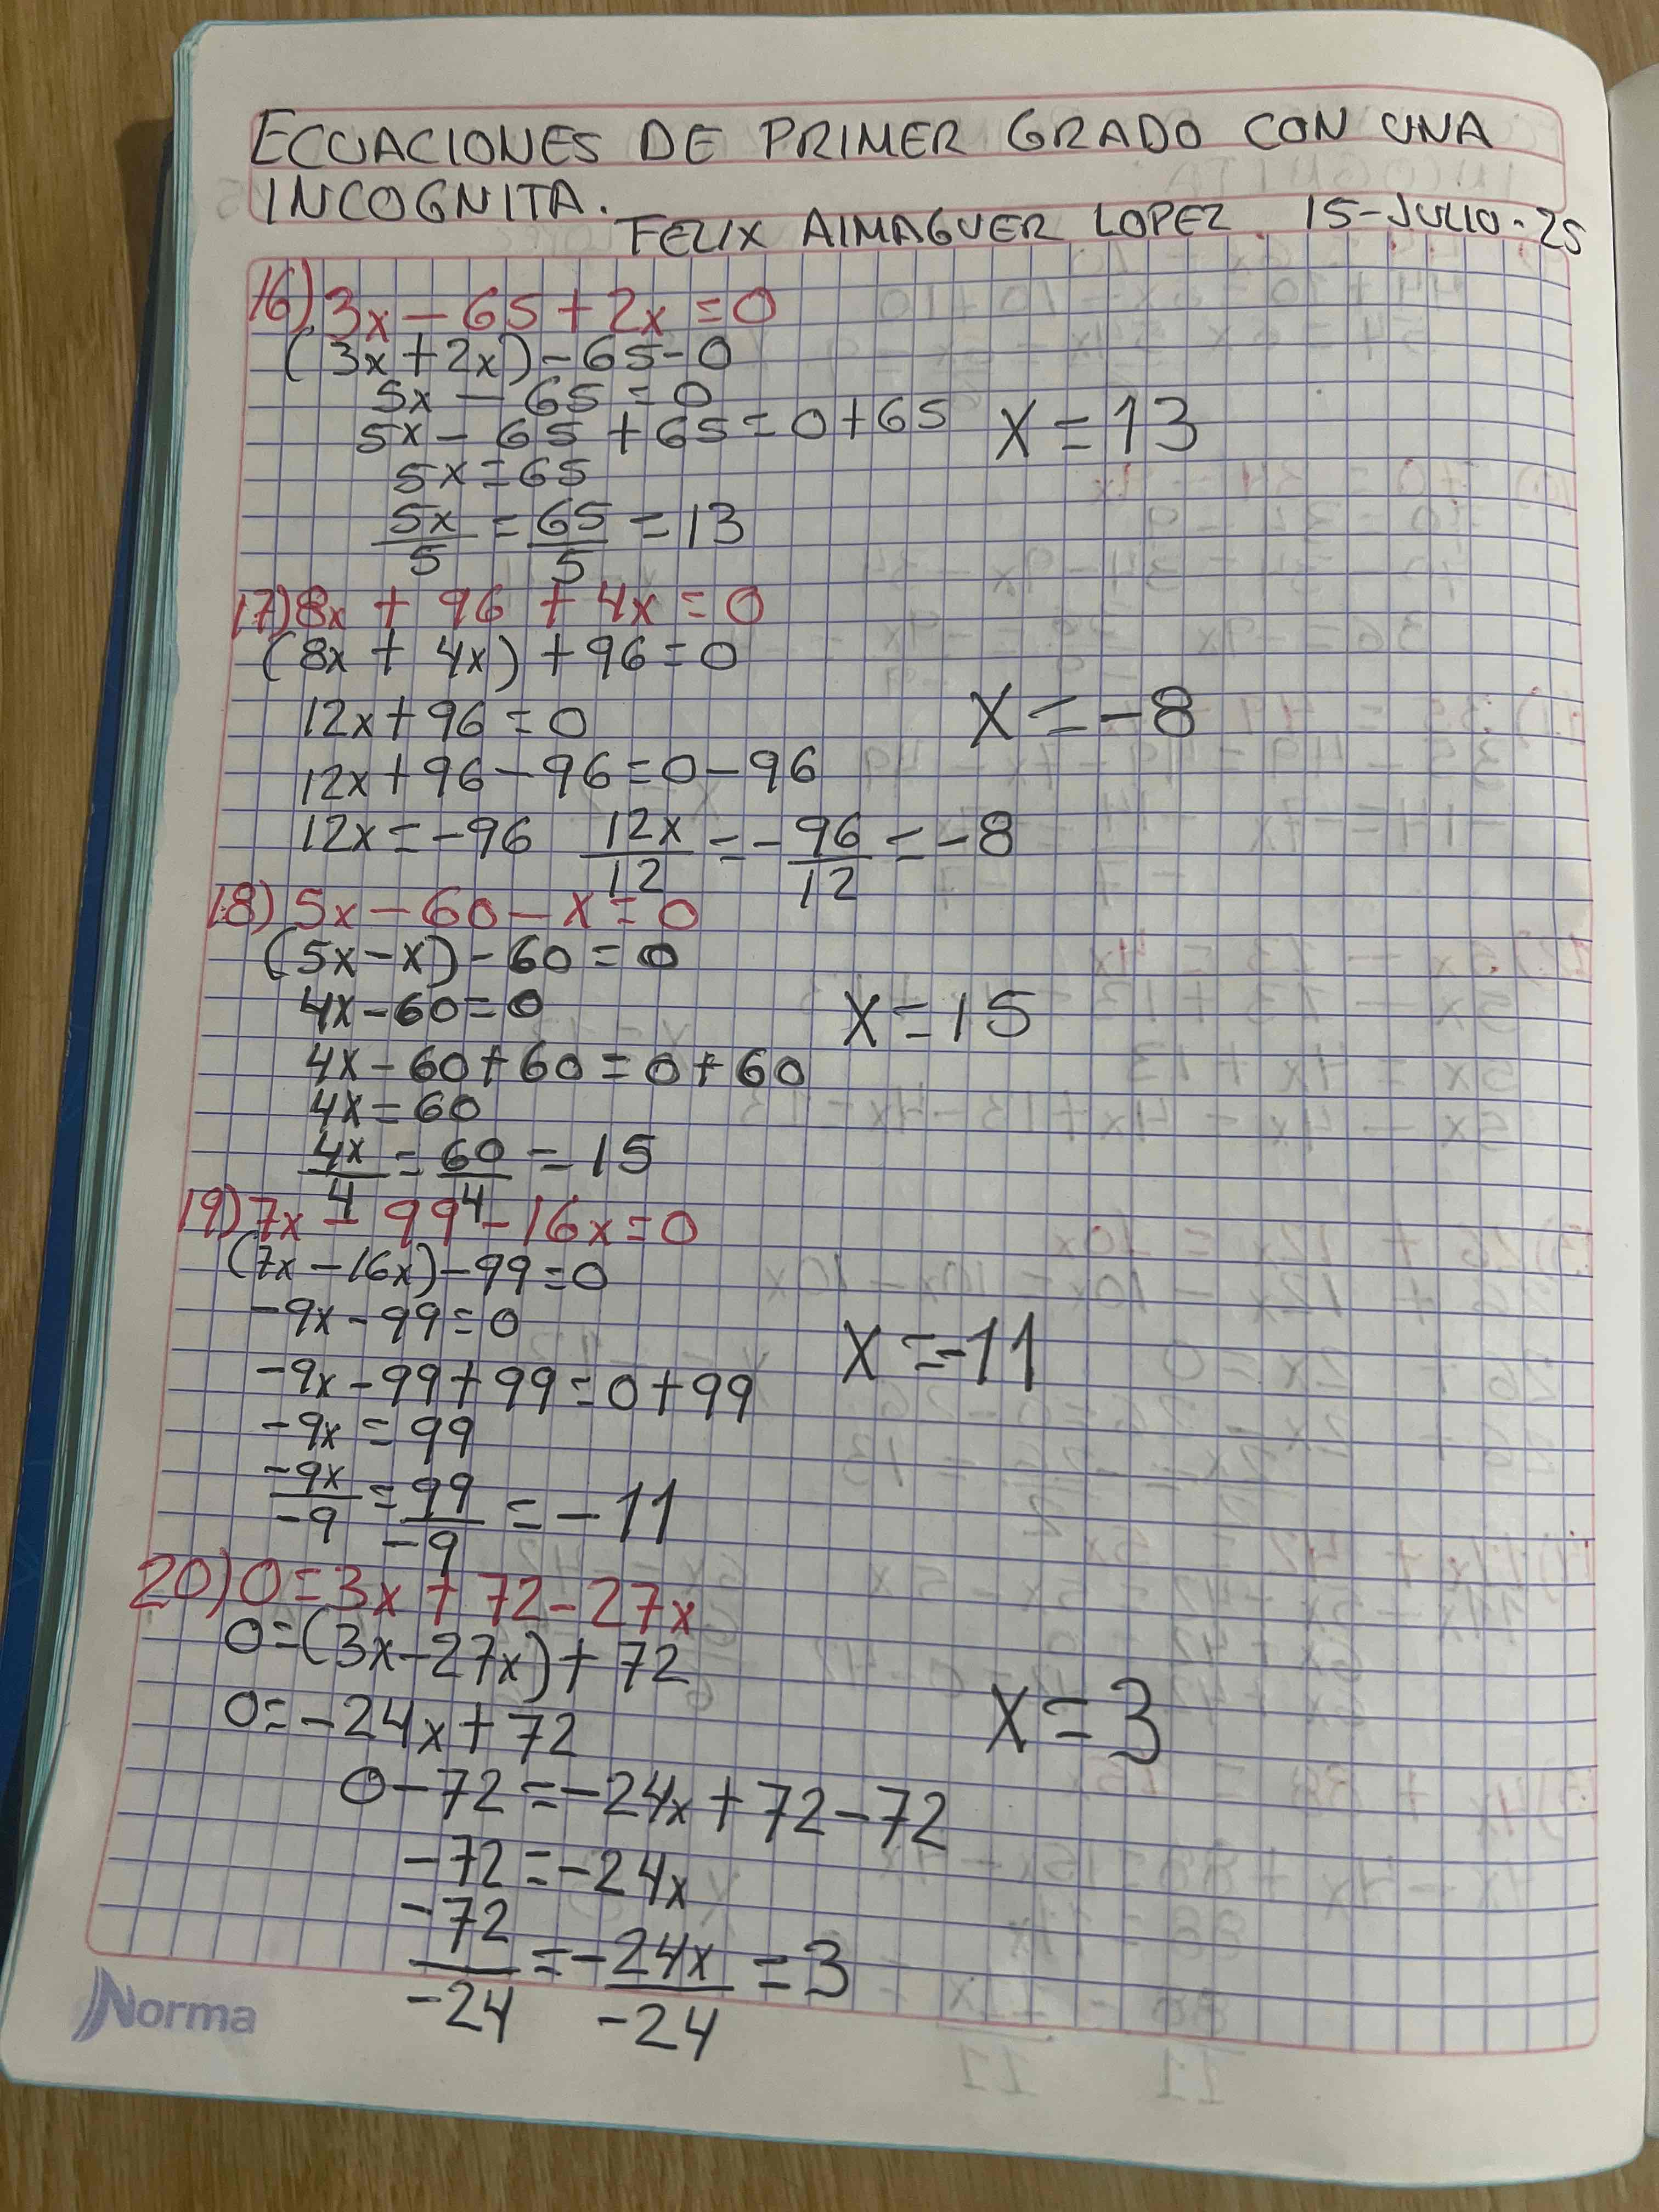 ECUACIONES DE PRIMER GRADO CON UNA
INCOGNITA.
FELIX AlMAGUER LOPEZ. 15-JULIO-25
16) 3x - 65 + 2x = 0
(3x + 2x) - 65 - 0
5x - 65 = 0
5x - 65 + 65 = 0 + 65
x = 13
5x = 65
5x/5 = 65/5 = 13
17) 8x + 96 + 4x = 0
(8x + 4x) + 96 = 0
12x + 96 = 0
x = -8
12x + 96 - 96 = 0 - 96
12x = -96 12x/12 = -96/12 = -8
18) 5x - 60 - x = 0
(5x - x) - 60 = 0
4x - 60 = 0
x = 15
4x - 60 + 60 = 0 + 60
4x = 60
4x/4 = 60/4 = 15
19) 7x - 99 - 16x = 0
(7x - 16x) - 99 = 0
-9x - 99 = 0
x = -11
-9x - 99 + 99 = 0 + 99
-9x = 99
-9x/-9 = 99/-9 = -11
20) 0 = 3x + 72 - 27x
0 = (3x - 27x) + 72
0 = -24x + 72
x = 3
0 - 72 = -24x + 72 - 72
-72 = -24x
-72/-24 = -24x/-24 = 3
Norma